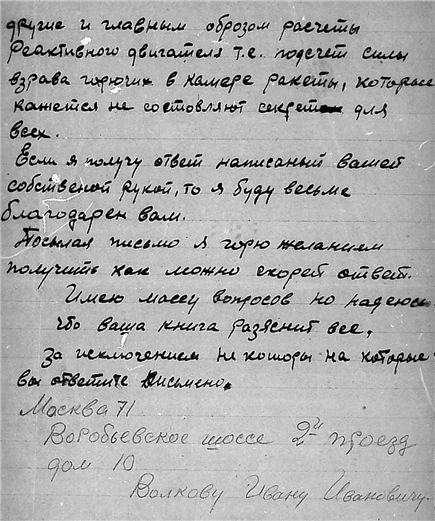 другие и главным образом расчеты
Реактивного двигателя т.е. подсчет силы
взрава горючих в камере ракеты, которые
кажется не состовляют секрет для
всех.
Если я получу ответ написаный вашей
собственой рукой, то я буду весьме
благодарен вам.
Посылая письмо я горю желанием
получить как можно скорей ответ.
Имею массу вопросов но надеюсь
что ваша книга разяснит все,
за исключением не которы на которые
вы ответите писмено.
Москва 71
Воробьевское шоссе 2й проезд
дом 10
Волкову Ивану Ивановичу.